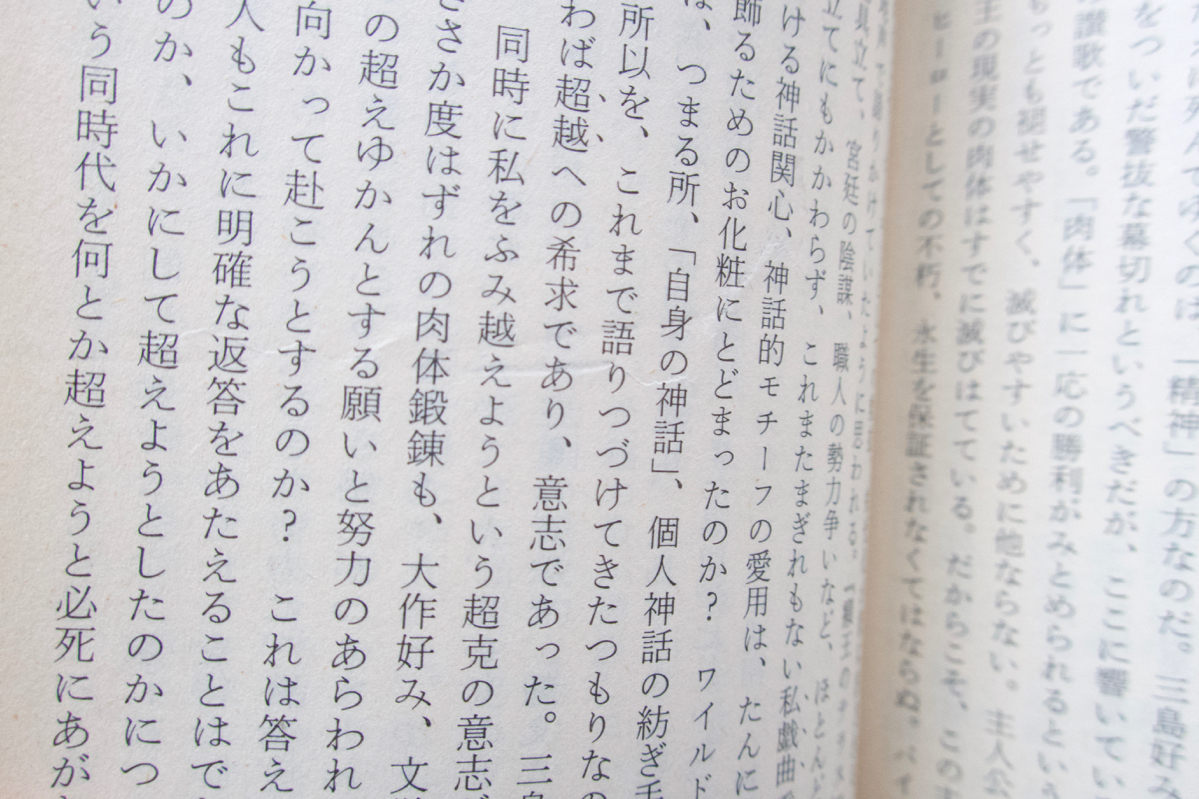 「精神」の方なのだ。三島好み
をついだ警抜な幕切れというべきだが、ここに響いてい
讃歌である。「肉体」に一応の勝利がみとめられるという
っとも褪せやすく、滅びやすいために他ならない。主人公
王の現実の肉体はすでに滅びはてている。だからこそ、この
ヒーローとしての不朽、永生を保証されなくてはならぬ。バイ
見立て、宮廷の陰謀、職人の勢力争いなど、ほとんど
立てにもかかわらず、これまたまぎれもない私戯曲
ける神話関心、神話的モチーフの愛用は、たんに
飾るためのお化粧にとどまったのか？　ワイルド
は、つまる所、「自身の神話」、個人神話の紡ぎ
所以を、これまで語りつづけてきたつもりなの
わば超越への希求であり、意志であった。三島
同時に私をふみ越えようという超克の意志
ささか度はずれの肉体鍛錬も、大作好み、文
の超えゆかんとする願いと努力のあらわれ
向かって赴こうとするのか？　これは答え
人もこれに明確な返答をあたえることはで
のか、いかにして超えようとしたのかにつ
いう同時代を何とか超えようと必死にあが